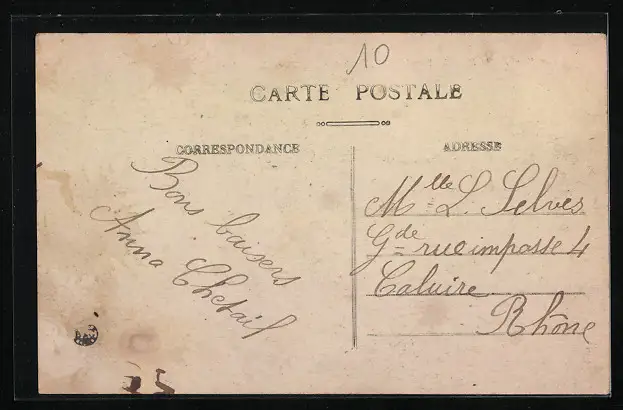 10
CARTE POSTALE
CORRESPONDANCE
Bons baisers
Anna Chetail
ADRESSE
Mlle L. Selves
Gde rue impasse 4
Caluire
Rhône